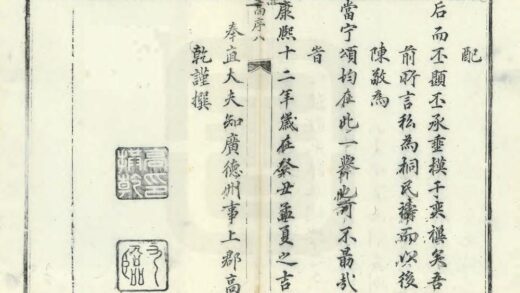 配
后而丕顯丕承垂模千奕禩矣吾
前所言私為桐民禱而以後
陳敬為
當宁頌均在此一舉也可不勗哉
旹
康熙十二年歲在癸丑孟夏之吉
高序八
奉直大夫知廣德州事上郡高
乾謹撰
高印拱乾
九臨